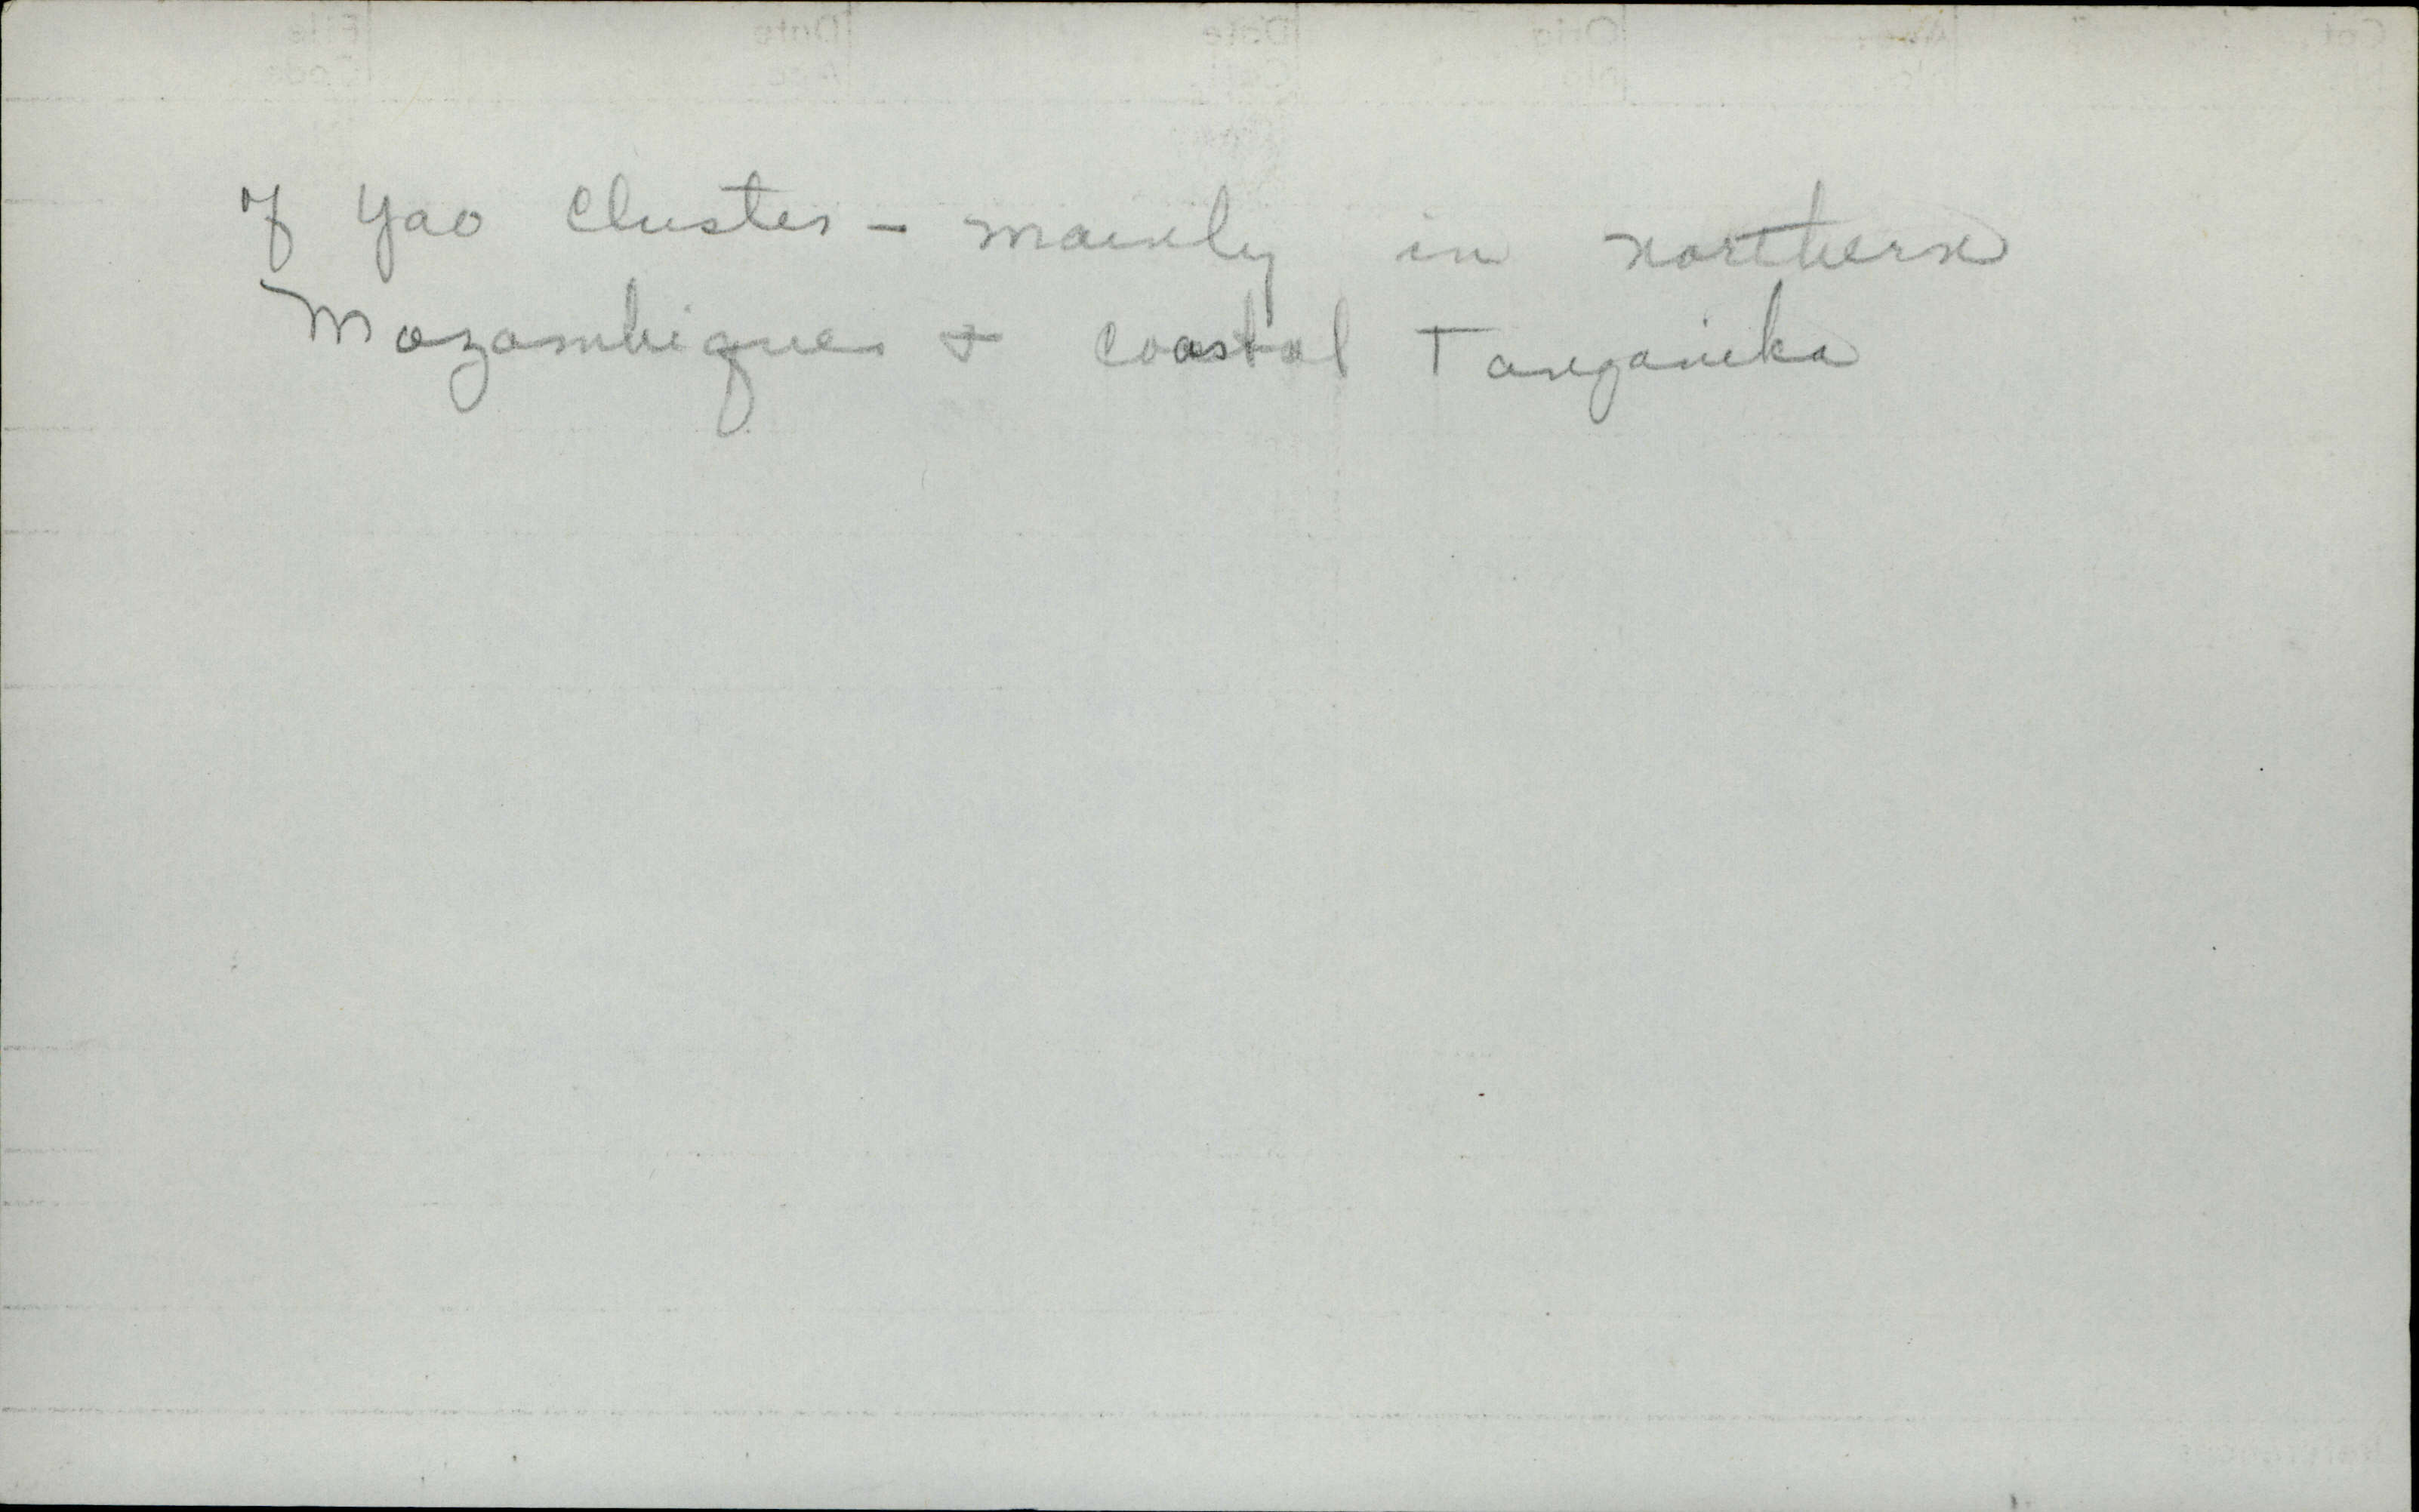 of Yao Cluster - mainly in northern
Mozambique & coastal Tanganika